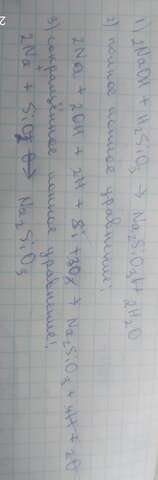 1) 2NaOH + H2SiO3 → Na2SiO3 + 2H2O
2) полное ионное уравнение:
2Na + 2OH + 2H + Si + 3O → Na2SiO3 + 4H + 2O
3) сокращённое ионное уравнение:
2Na + SiO3 → Na2SiO3